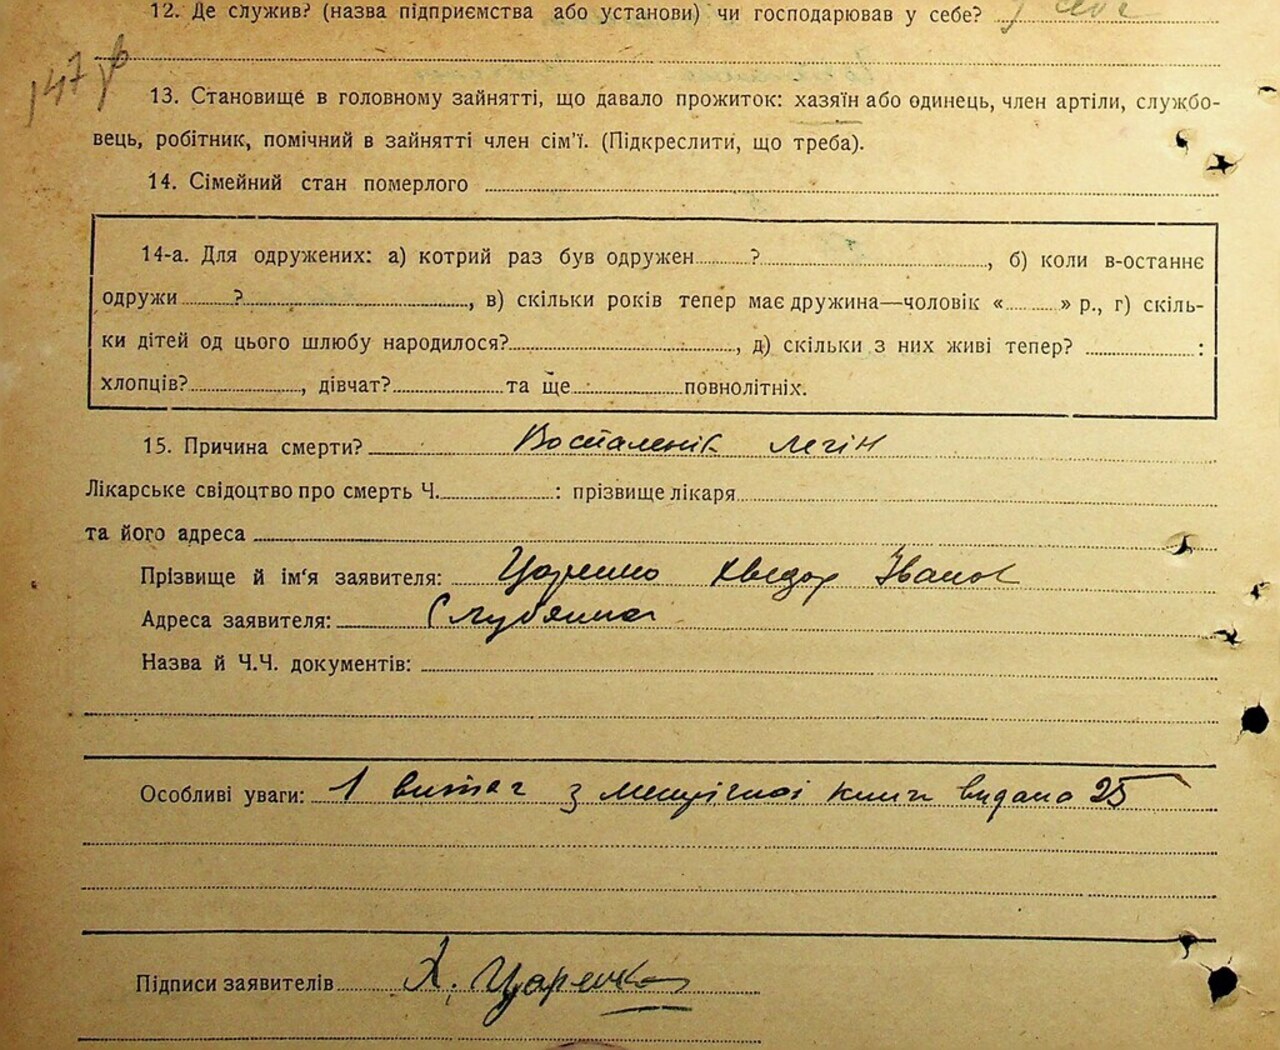 12. Де служив? (назва підприємства або установи) чи господарював у себе? у себе
147
13. Становище в головному зайнятті, що давало прожиток: хазяїн або одинець, член артіли, службо-
вець, робітник, помічний в зайнятті член сім'ї. (Підкреслити, що треба).
14. Сімейний стан померлого
14-а. Для одружених: а) котрий раз був одружен ? , б) коли в-останнє
одружи ? , в) скільки років тепер має дружина—чоловік « » р., г) скіль-
ки дітей од цього шлюбу народилося? , д) скільки з них живі тепер? :
хлопців? , дівчат? та ще повнолітніх.
15. Причина смерти? Воспаленік легін
Лікарське свідоцтво про смерть Ч. : прізвище лікаря
та його адреса
Прізвище й ім'я заявителя: Царенко Хведор Іванов
Адреса заявителя:
Назва й Ч.Ч. документів:
Особливі уваги: 1 витяг з метричної книги видано 25
Підписи заявителів Х. Царенко